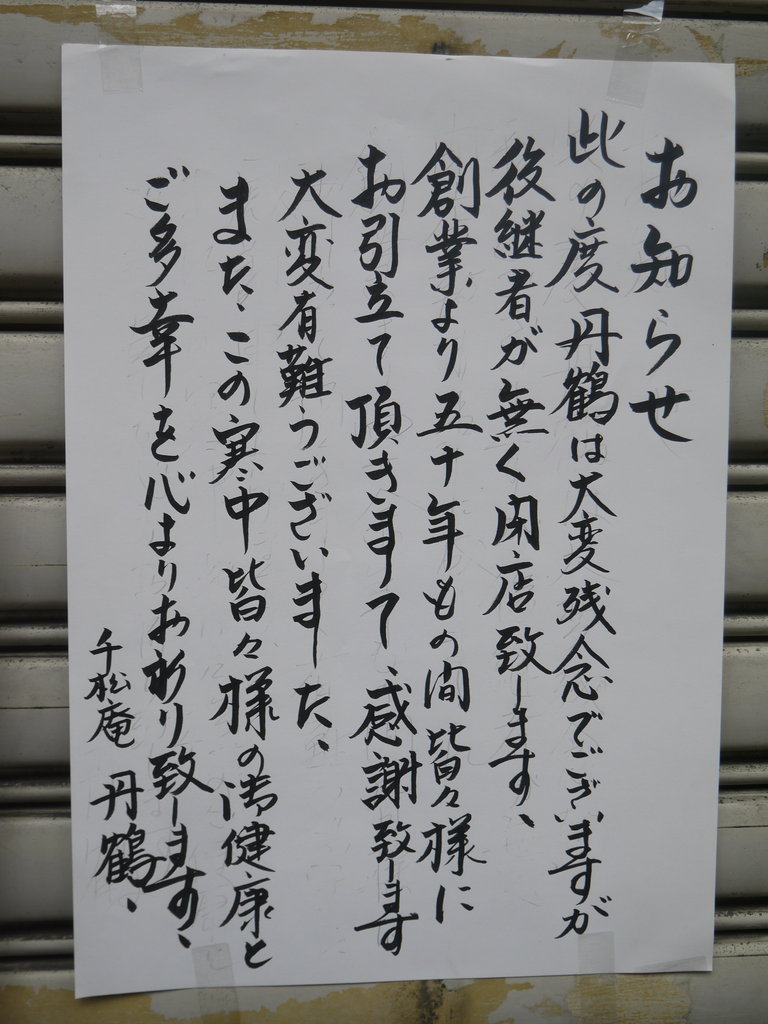 お知らせ
此の度丹鶴は大変残念でございますが
後継者が無く閉店致します、
創業より五十年もの間皆々様に
お引立て頂きまして、感謝致します
大変有難うございました、
また、この寒中皆々様の御健康と
ご多幸を心よりお祈り致します、
千松庵 丹鶴、